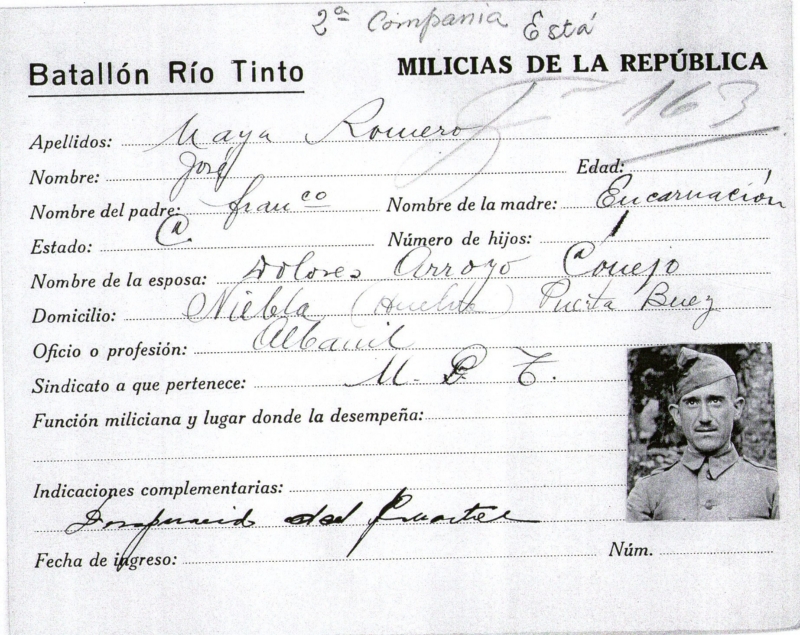 2ª Compania Está
Batallón Río Tinto MILICIAS DE LA REPÚBLICA
163
Apellidos: Maya Romero
Nombre: José Edad:
Nombre del padre: franco Nombre de la madre: Encarnación
Estado: C Número de hijos: 1
Nombre de la esposa: Dolores Arroyo Conejo
Domicilio: Niebla (Huelva) Puerta Buey
Oficio o profesión: Albanil
Sindicato a que pertenece: U. G. T.
Función miliciana y lugar donde la desempeña:
Indicaciones complementarias:
del Cuartel
Fecha de ingreso: Núm.